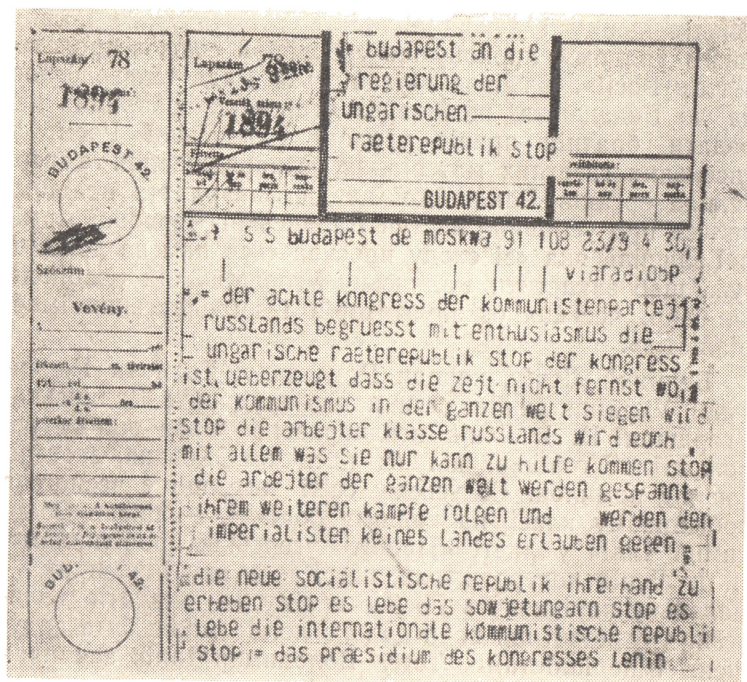 Lapszám 78
1894
BUDAPEST 42.
Szószám
Vevény.
Lapszám 78
1894
= budapest an die
regierung der
ungarischen
raeterepublik stop
BUDAPEST 42.
s s budapest de moskwa 91 108 23/3 4 30
viaradiobp
= der achte kongress der kommunistenpartej
russlands begruesst mit enthusiasmus die
ungarische raeterepublik stop der kongress
ist ueberzeugt dass die zejt nicht fernst wo
der kommunismus in der ganzen welt siegen wird
stop die arbejter klasse russlands wird euch
mit allem was sie nur kann zu hilfe kommen stop
die arbejter der ganzen welt werden gespannt
ihrem weiteren kampfe folgen und werden den
imperialisten keines landes erlauben gegen
die neue socialistische republik ihre hand zu
erheben stop es lebe das sowjetungarn stop es
lebe die internationale kommunistische republi
stop = das praesidium des kongresses lenin
BUD 42.